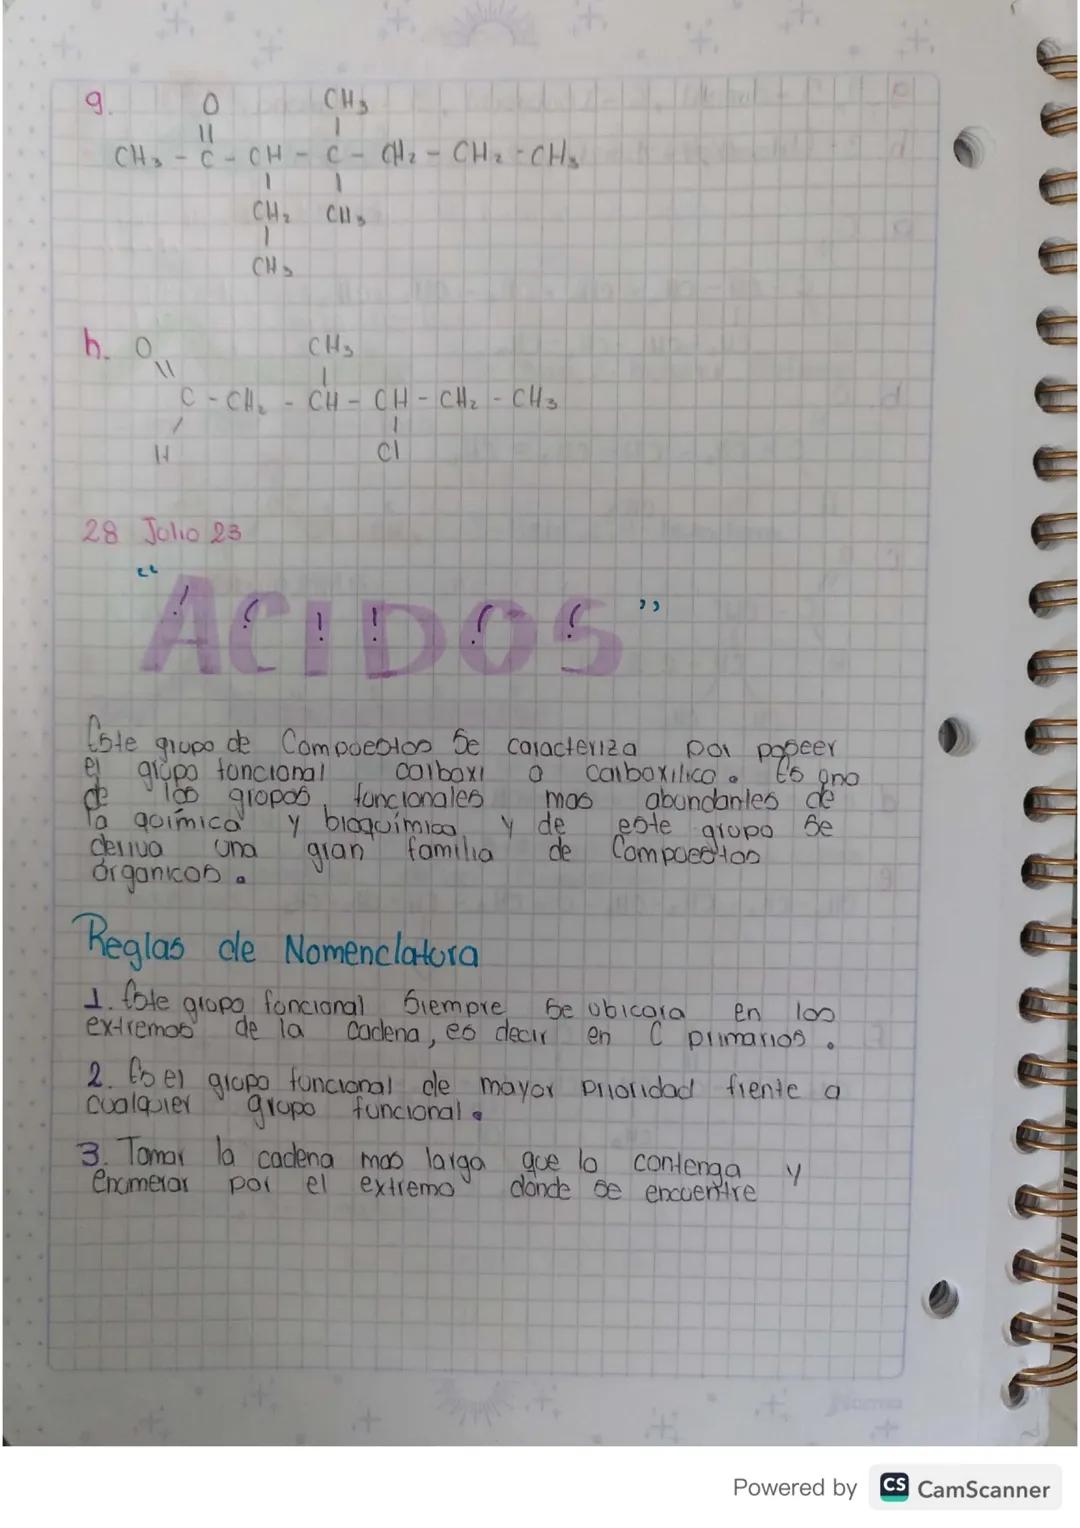 g.
O CH3
||
CH3 - C - CH - C - CH2 - CH2 - CH3
CH2 CH3
CH3
h. O CH3
\\
C - CH2 - CH - CH - CH2 - CH3
/
H Cl
28 Julio 23
“ACIDOS”
Este grupo de Compuestos Se caracteriza por poseer
el grupo funcional carboxi o carboxilico. Es uno
de los grupos funcionales mas abundantes de
la química y bioquímica y de este grupo Se
deriva una gran familia de Compuestos
órganicos.
Reglas de Nomenclatura
1. Este grupo funcional Siempre se ubicara en los
extremos de la cadena, es decir en C primarios.
2. Es el grupo funcional de mayor prioridad frente a
cualquier grupo funcional.
3. Tomar la cadena mas larga que lo contenga y
Enumerar por el extremo dónde se encuentre
Norma
Powered by CS CamScanner